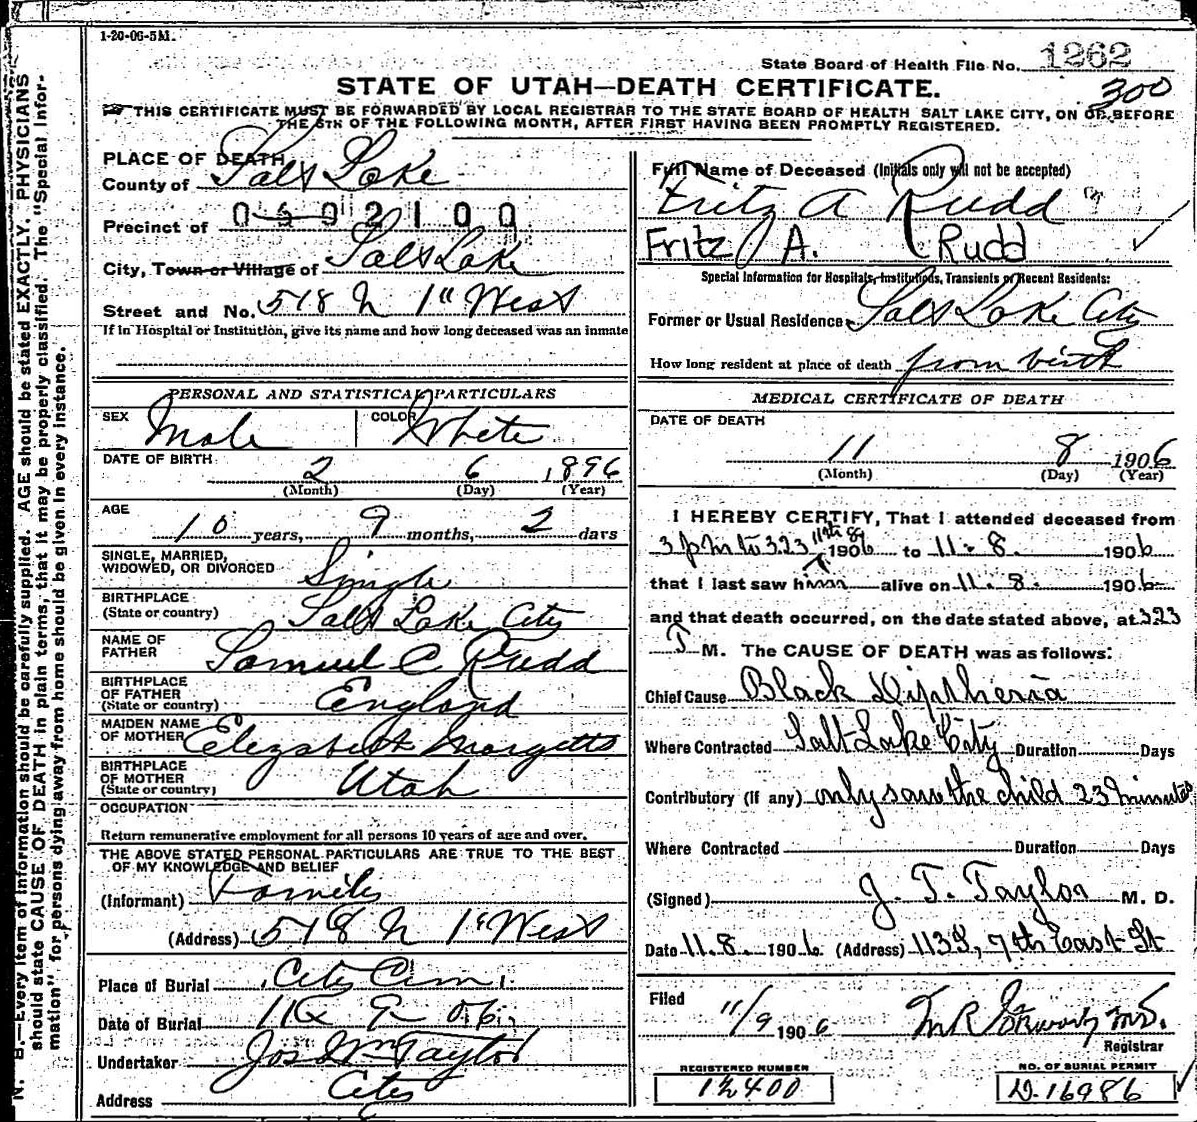 1-20-06-5M.
State Board of Health File No. 1262
300
STATE OF UTAH—DEATH CERTIFICATE.
THIS CERTIFICATE MUST BE FORWARDED BY LOCAL REGISTRAR TO THE STATE BOARD OF HEALTH SALT LAKE CITY, ON OR BEFORE
THE 5TH OF THE FOLLOWING MONTH, AFTER FIRST HAVING BEEN PROMPTLY REGISTERED.
N. B.—Every item of information should be carefully supplied. AGE should be stated EXACTLY. PHYSICIANS
should state CAUSE OF DEATH in plain terms, that it may be properly classified. The "Special Infor-
mation" for persons dying away from home should be given in every instance.
PLACE OF DEATH
County of Salt Lake
Precinct of 0502100
City, Town or Village of Salt Lake
Street and No. 518 N 1st West
If in Hospital or Institution, give its name and how long deceased was an inmate
PERSONAL AND STATISTICAL PARTICULARS
SEX Male COLOR White
DATE OF BIRTH 2 6 1896
(Month) (Day) (Year)
AGE 10 years, 9 months, 2 days
SINGLE, MARRIED,
WIDOWED, OR DIVORCED Single
BIRTHPLACE
(State or country) Salt Lake City
NAME OF
FATHER Samuel C Rudd
BIRTHPLACE
OF FATHER
(State or country) England
MAIDEN NAME
OF MOTHER Elizabeth Margetts
BIRTHPLACE
OF MOTHER
(State or country) Utah
OCCUPATION
Return remunerative employment for all persons 10 years of age and over.
THE ABOVE STATED PERSONAL PARTICULARS ARE TRUE TO THE BEST
OF MY KNOWLEDGE AND BELIEF
(Informant) Family
(Address) 518 N 1st West
Place of Burial City Cem.
Date of Burial 11 9 06
Undertaker Jos Wm Taylor
Address City
Full Name of Deceased (Initials only will not be accepted)
Fritz A Rudd
Fritz A. Rudd
Special Information for Hospitals, Institutions, Transients or Recent Residents:
Former or Usual Residence Salt Lake City
How long resident at place of death from birth
MEDICAL CERTIFICATE OF DEATH
DATE OF DEATH
11 8 1906
(Month) (Day) (Year)
I HEREBY CERTIFY, That I attended deceased from
3 pm to 323 11th 8th 1906 to 11-8. 1906
that I last saw him alive on 11. 8. 1906
and that death occurred, on the date stated above, at 323
P M. The CAUSE OF DEATH was as follows:
Chief Cause Black Diptheria
Where Contracted Salt Lake City Duration Days
Contributory (if any) only saw the child 23 minutes
Where Contracted Duration Days
(Signed) J. T. Taylor M. D.
Date 11.8. 1906 (Address) 113 S, 7th East St
Filed
11/9 1906 M.D.
Registrar
REGISTERED NUMBER
12400
NO. OF BURIAL PERMIT
D.16986